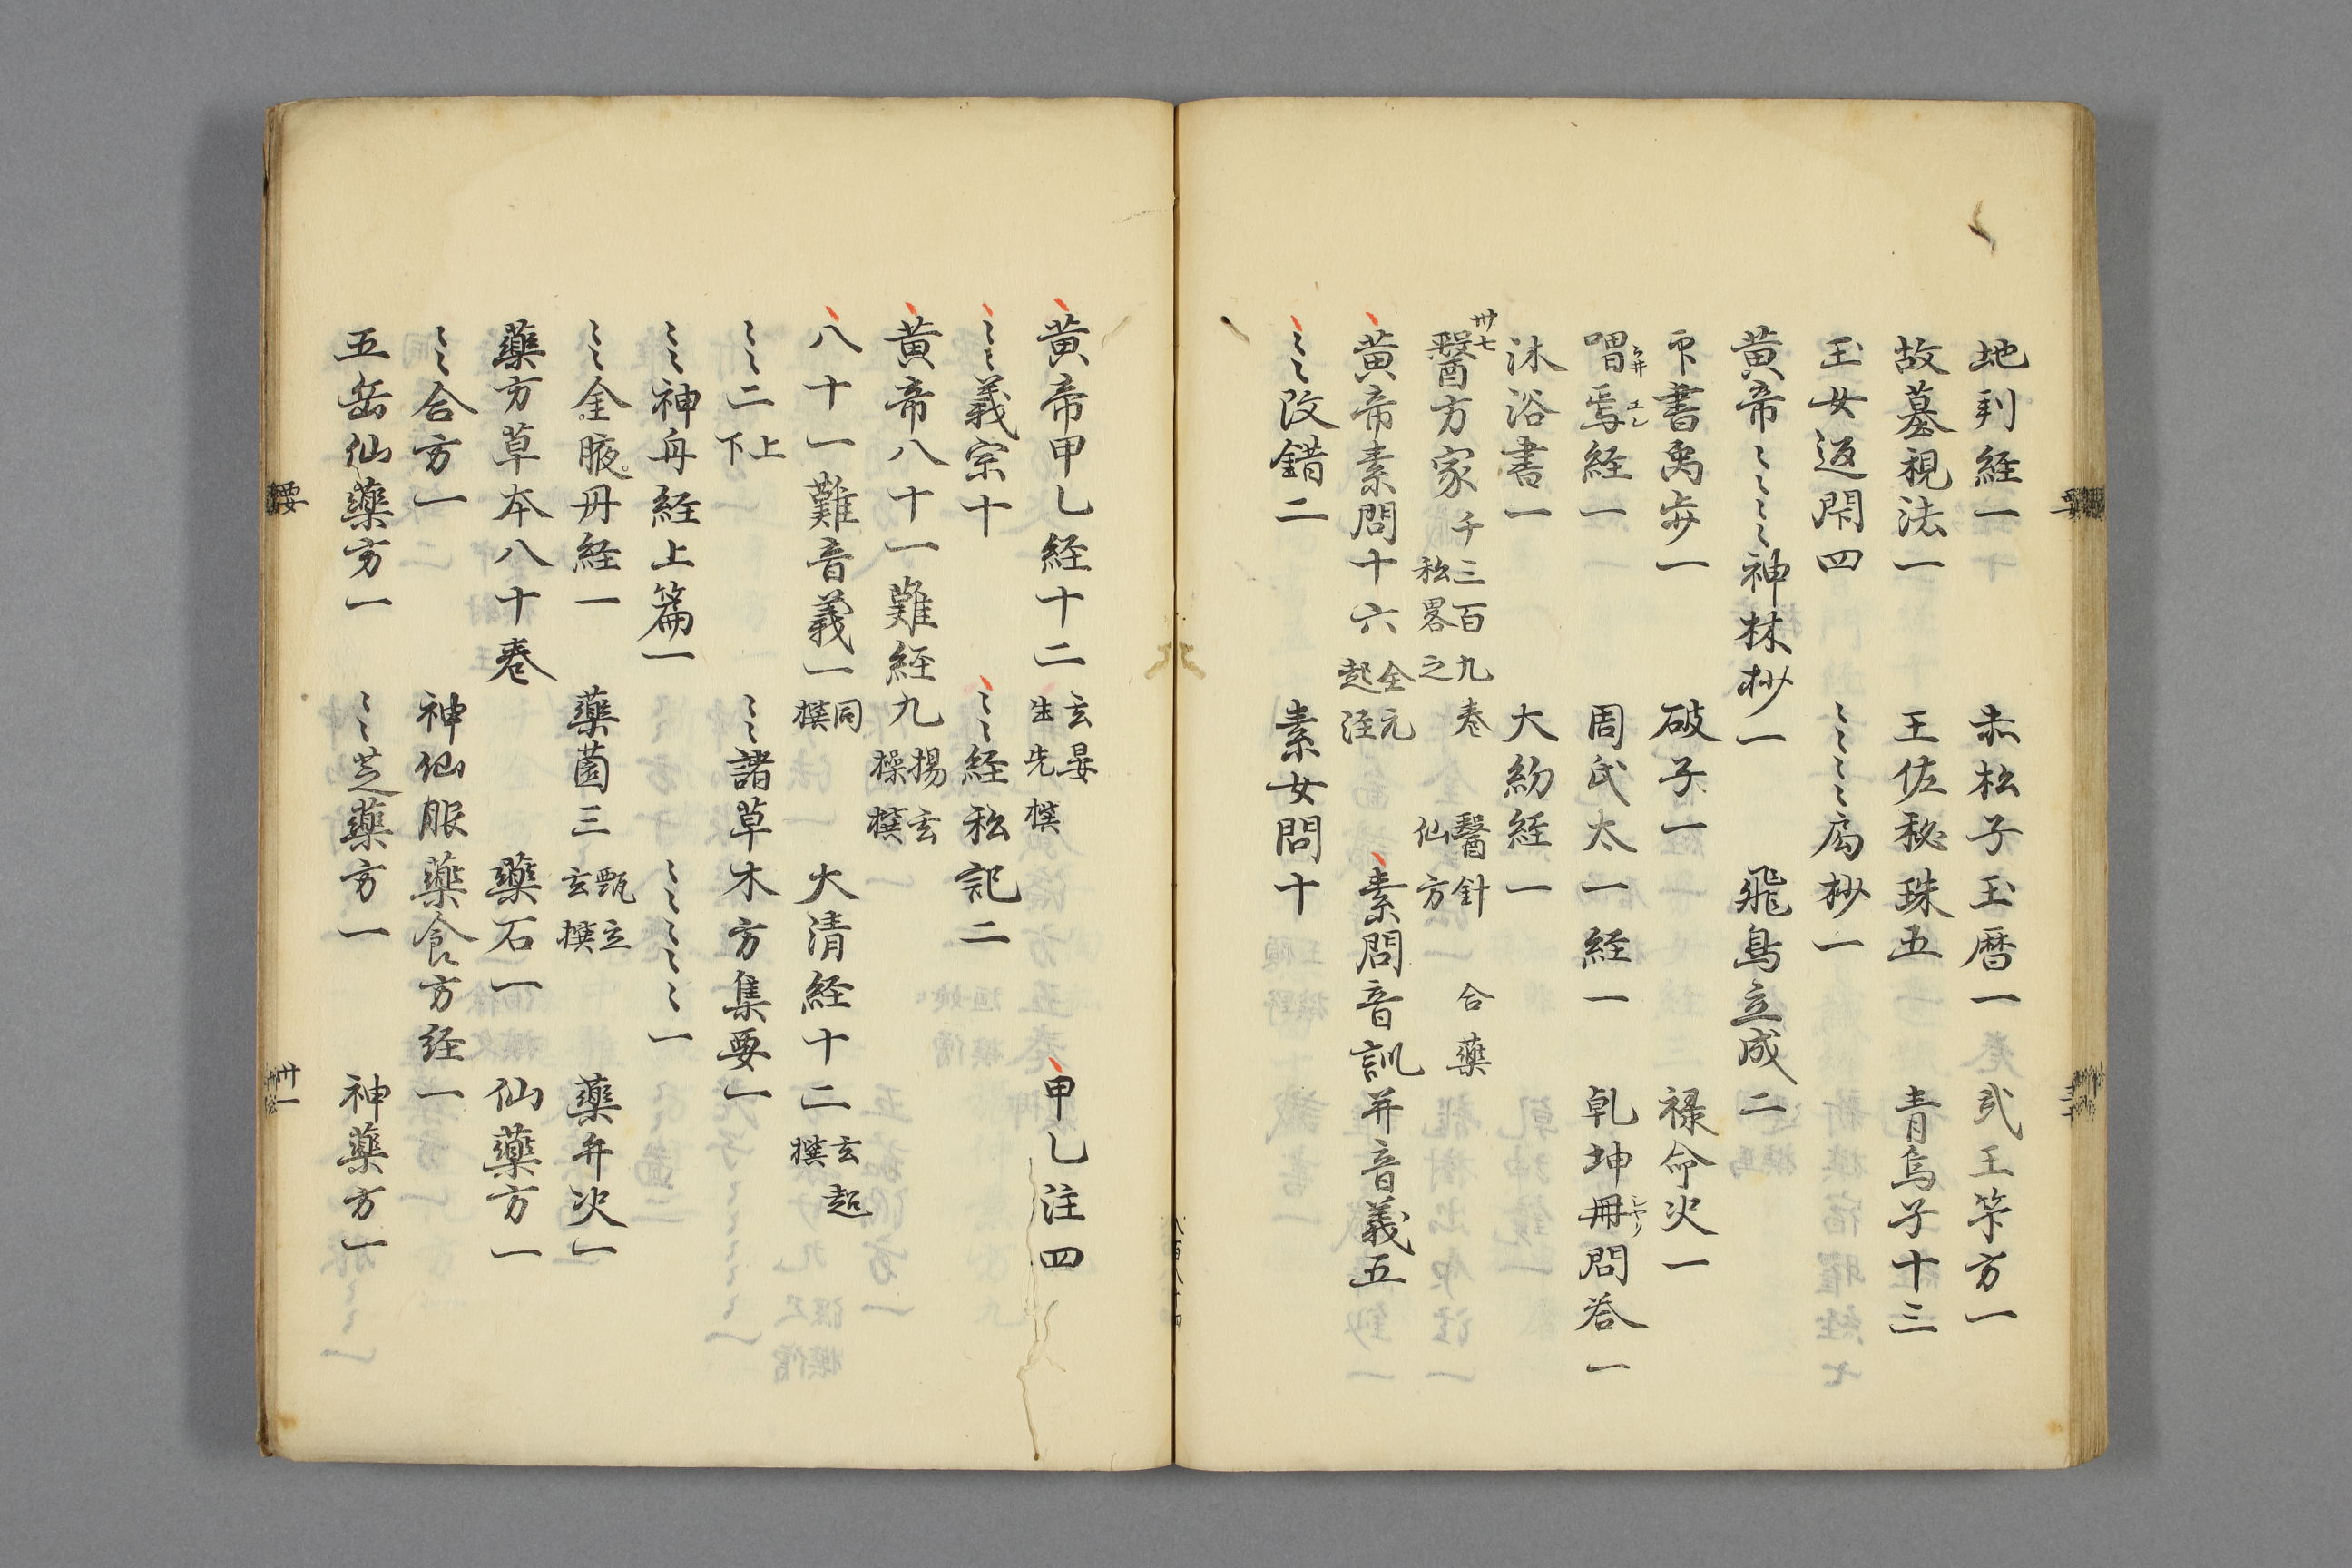 地判経一　赤松子玉暦一　武王竿方一
故墓視法一　王佐秘珠五　青烏子十三
玉女返閇四　〻〻〻〻局抄一
黄帝〻〻〻〻神林抄一　飛鳥立成二
印書禹歩一　破子一　禄命决一
喟焉経一　周氏太一経一　乹坤冊問荅一
沐浴書一　大紛経一
卅七
醫方家　千三百九巻　私畧之　醫針　合藥　仙方
黄帝素問十六　全元起注　素問音訓并音義五
〻〻改錯二　素女問十
黄帝甲乙経十二　玄晏先生撰　甲乙注四
〻〻義宗十　〻〻経私記二
黄帝八十一難経九　揚玄操撰
八十一難音義一　同撰　大清経十二　玄超撰
〻〻二　上下　〻〻諸草木方集要一
〻〻神舟経上篇一　〻〻〻〻〻〻一
〻〻金腋丹経一　藥薗三　甄立玄撰　藥弁决一
藥方草本八十巻　藥石一　仙藥方一
〻〻合方一　神仙服藥食方経一
五岳仙藥方一　〻〻芝藥方一　神藥方一
卅一